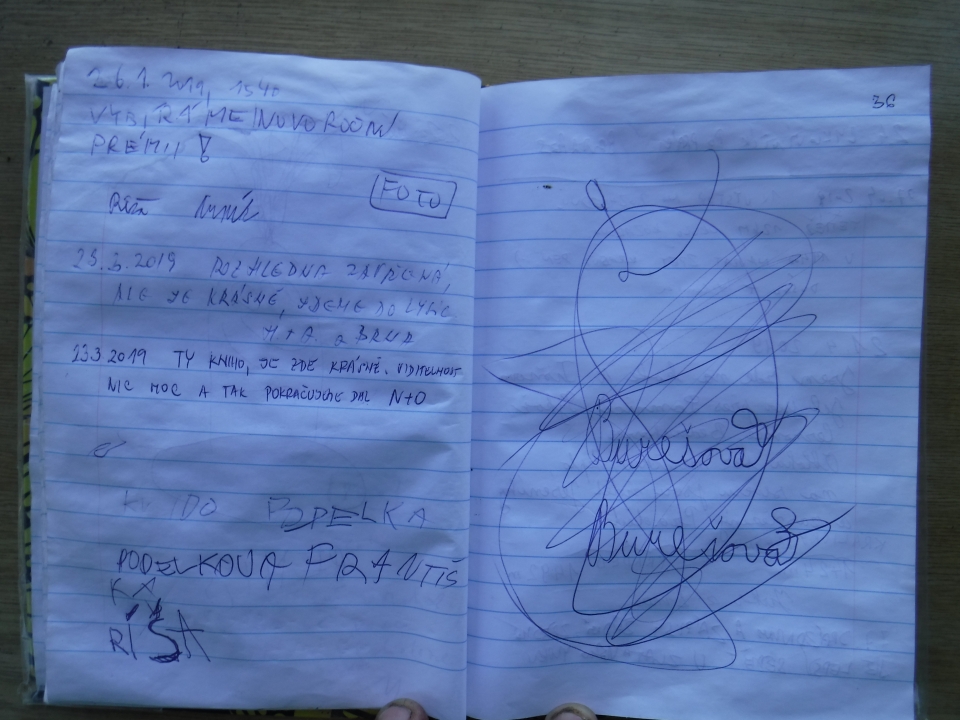 26.1.2019, 1540
VYBÍRÁME NOVOROČNÍ
PRÉMII !
FOTO
23.3.2019 ROZHLEDNA ZAVŘENÁ,
ALE JE KRÁSNĚ, JDEME DO
H+A a
23.3 2019 TY KNIHO, JE ZDE KRÁSNĚ. VIDITELNOST
NIC MOC A TAK POKRAČUJEME DÁL N+O
KVIDO
FRANTIŠ
KA
RÍŠA
36
Burešová
Burešová